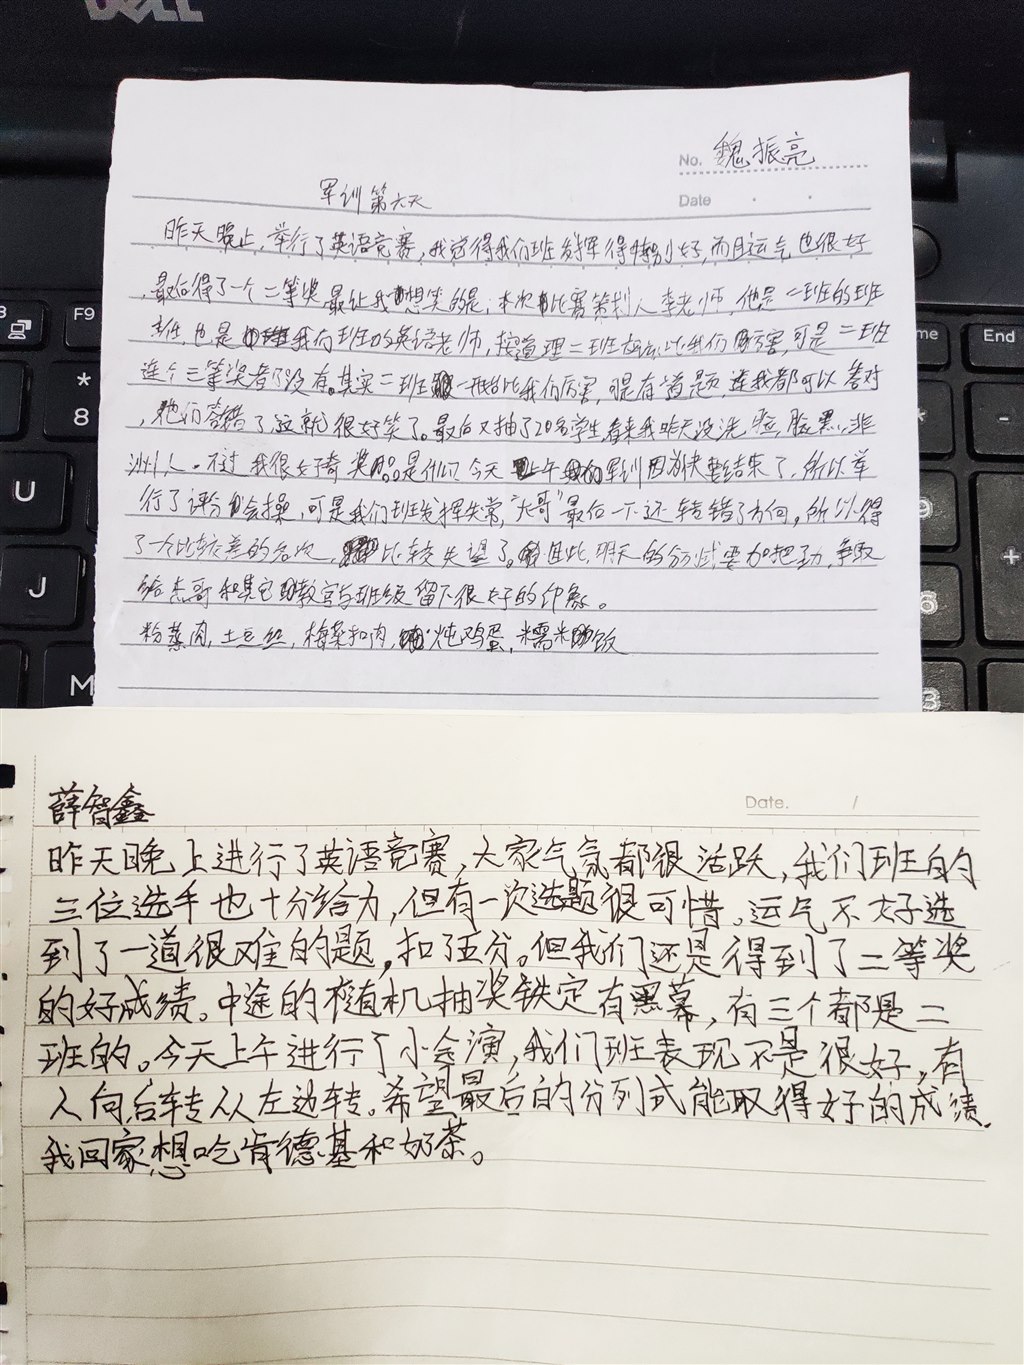 DELL
F9
*
8
U
J
M
End
+
No. 魏振亮
Date
军训第六天
昨天晚上,举行了英语竞赛,我觉得我们班发挥得特别好,而且运气也很好
,最后得了一个二等奖,最让我想笑的是,本次比赛策划人李老师,他是二班的班
主任,也是我们班的英语老师,按道理二班应该比我们厉害,可是二班
连个三等奖都没有。其实二班一般都比我们厉害,可是有道题,连我都可以答对
,他们答错了,这就很好笑了。最后又抽了20名学生,看来我昨天没洗脸,脸黑,非
洲人。不过我很好奇奖品是什么。今天上午军训因为快要结束了,所以举
行了评分会操,可是我们班发挥失常,“大哥”最后一下还转错了方向。所以得
了一个比较差的名次,比较失望了。因此,明天的分列式要加把劲,争取
给杰哥和其它教官与班级留下很好的印象。
粉蒸肉,土豆丝,梅菜扣肉,炖鸡蛋,糯米饭
薛智鑫
Date. /
昨天晚上进行了英语竞赛,大家气氛都很活跃,我们班的
三位选手也十分给力,但有一次选题很可惜,运气不好选
到了一道很难的题,扣了五分。但我们还是得到了二等奖
的好成绩。中途的随机抽奖铁定有黑幕,有三个都是二
班的。今天上午进行了小会演,我们班表现不是很好,有
人向后转从左边转。希望最后的分列式能取得好的成绩.
我回家想吃肯德基和奶茶。